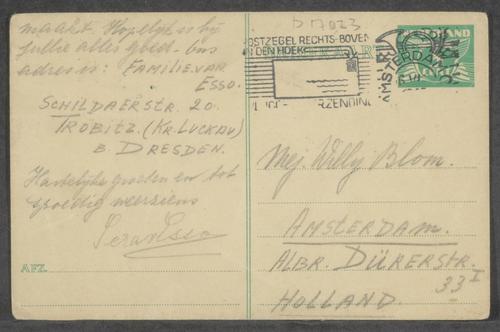 maakt. Hopelijk is bij
jullie alles goed. Ons
adres is: FAMILIE. VAN
ESSO.
SCHILDAERSTR. 20.
TROBITZ. (KR. LUCKAU)
B. DRESDEN.
Hartelijke groeten en tot
spoedig weerziens
AFZ.
D 17023
POSTZEGEL RECHTS-BOVEN
IN DEN HOEK
AMSTERDAM
Mej. Willy Blom.
AMSTERDAM.
ALBR. DÜRERSTR.
33 I
HOLLAND.